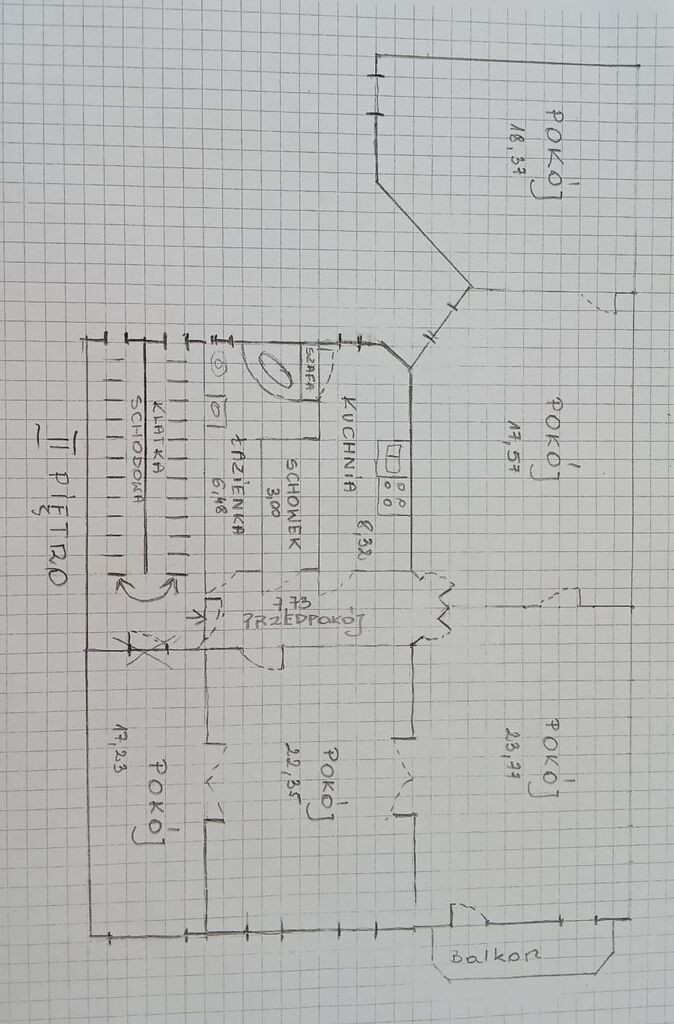 POKÓJ
18,37
POKÓJ
17,57
POKÓJ
23,77
SZAFA
KUCHNIA
8,32
SCHOWEK
3,00
ŁAZIENKA
6,48
KLATKA
SCHODOWA
7,73
PRZEDPOKÓJ
POKÓJ
22,35
POKÓJ
17,23
Balkon
II PIĘTRO